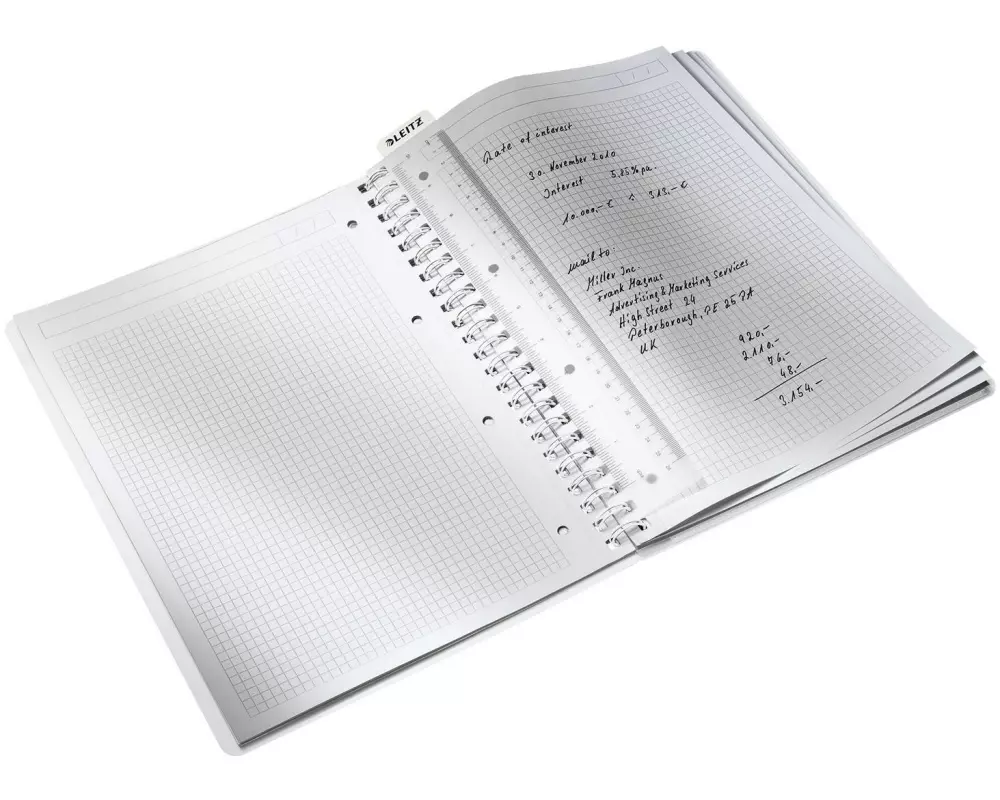 LEITZ
Rate of interest
30. November 2010
Interest 5,25% pa.
10.000,- €
313,- €
mail to:
Miller Inc.
Frank Magnus
Advertising & Marketing Services
High Street 24
Peterborough, PE 25 7A
UK
920,-
2.110,-
76,-
48,-
3.154,-